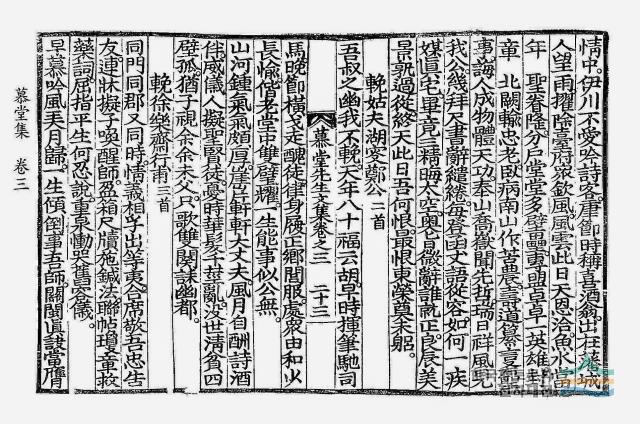 情中。伊川不愛吟詩客。
人望雨擢除臺府衆欽風。風雲此日天恩洽魚水當
年聖眷隆。分戶堂堂多
章北闕輸忠老臥病南山作苦農。
事誨人成物體天功泰山喬嶽聞先哲。瑞日祥風見
我公幾拜尺書辭繾綣。每昏函丈語從容如何一疾
精晦太空。奧旨微辭誰就正。良辰美
景孰過從終天此日吾何恨。最恨東榮奠未躬。
輓姑夫湖叟鄭公二首
吾叔之幽我不輓天年八十福云胡。早時揮筆馳司
馬晚節橫戈走醜徒律身屐正鄉閭服。處衆由和火
長愉。偕老堂中雙璧耀。一生能事似公無。
慕堂先生文集卷之三 二十三
山河鍾氣氣頗厚。軒軒大丈夫風月自酬詩酒
伴威儀人擬聖賢徒。憂時華髮千莖亂。沒世清貧四
壁孤。猶子視余余未父。只歌雙闋諫幽都。
輓徐樂齋行甫三首
同門同郡又同時。情義相孚出等夷。合席敬吾忠告
友。連牀擬子喚醒師。盈箱尺牘施鍼法。聯帖瓊章救
藥詞。屈指平生何忍說。重泉慟哭舊容儀。
早慕吟風弄月歸。一生傾倒事吾師。關閩眞訣當膺
慕堂集 卷三